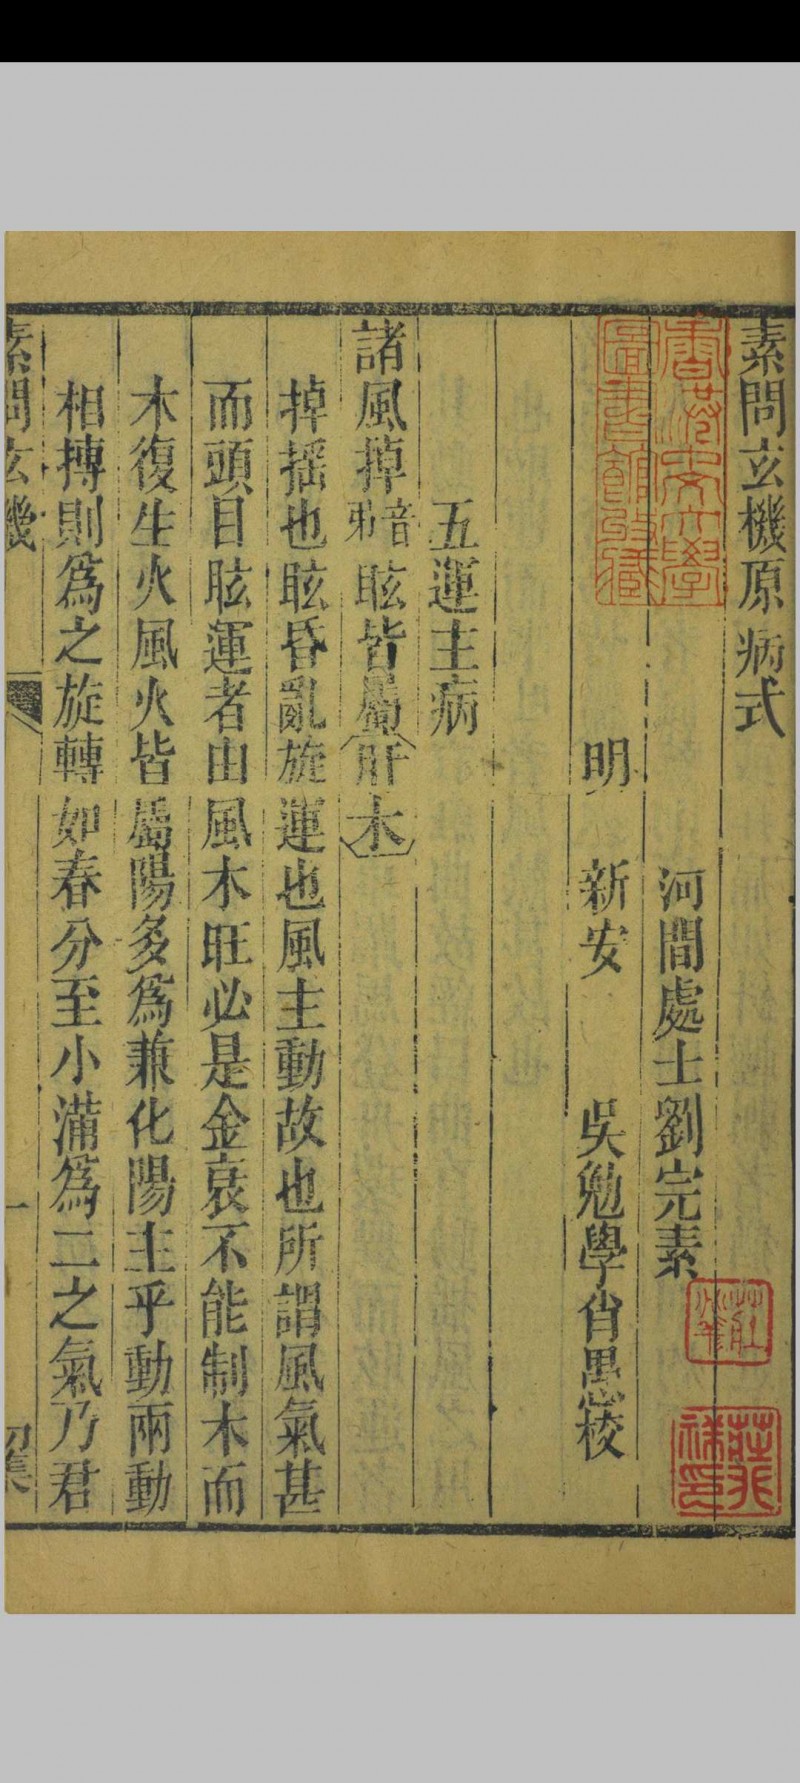 素問玄機原病式
河間處士劉完素
明 新安 吳勉學肖愚校
香港中文大學
圖書館藏
五運主病
諸風掉音弔眩皆屬肝木
掉搖也眩昏亂旋運也風主動故也所謂風氣甚
而頭目眩運者由風木旺必是金衰不能制木而
木復生火風火皆屬陽多爲兼化陽主乎動兩動
相搏則爲之旋轉如春分至小滿爲二之氣乃君
素問玄機
一